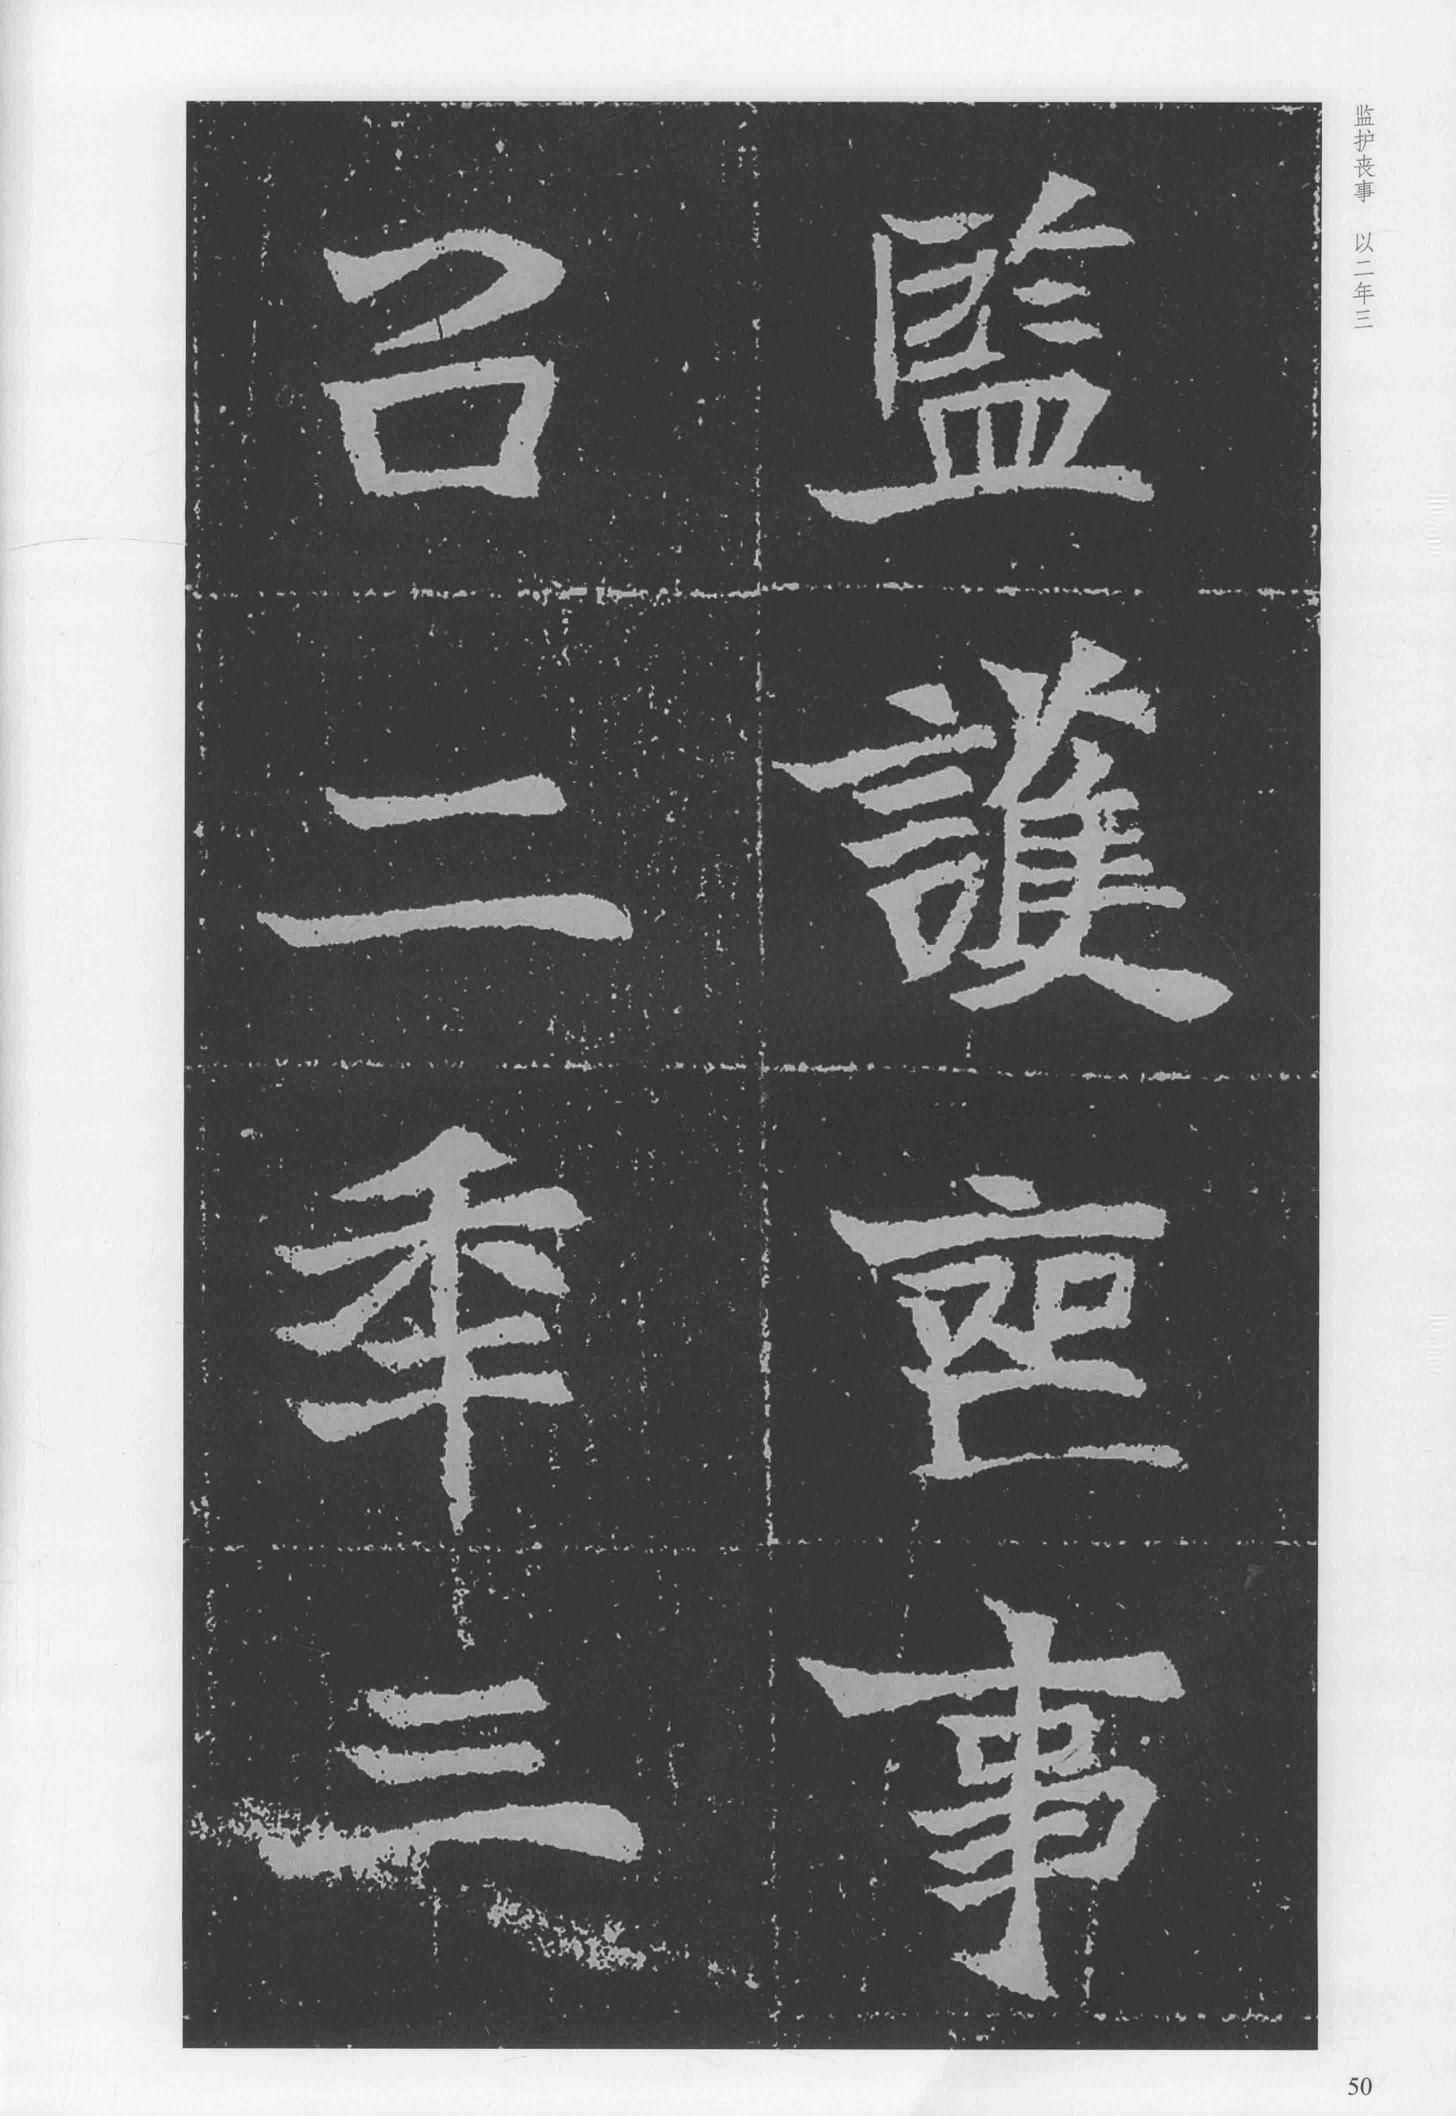 监护丧事 以二年三
監護喪事
以二年三
50